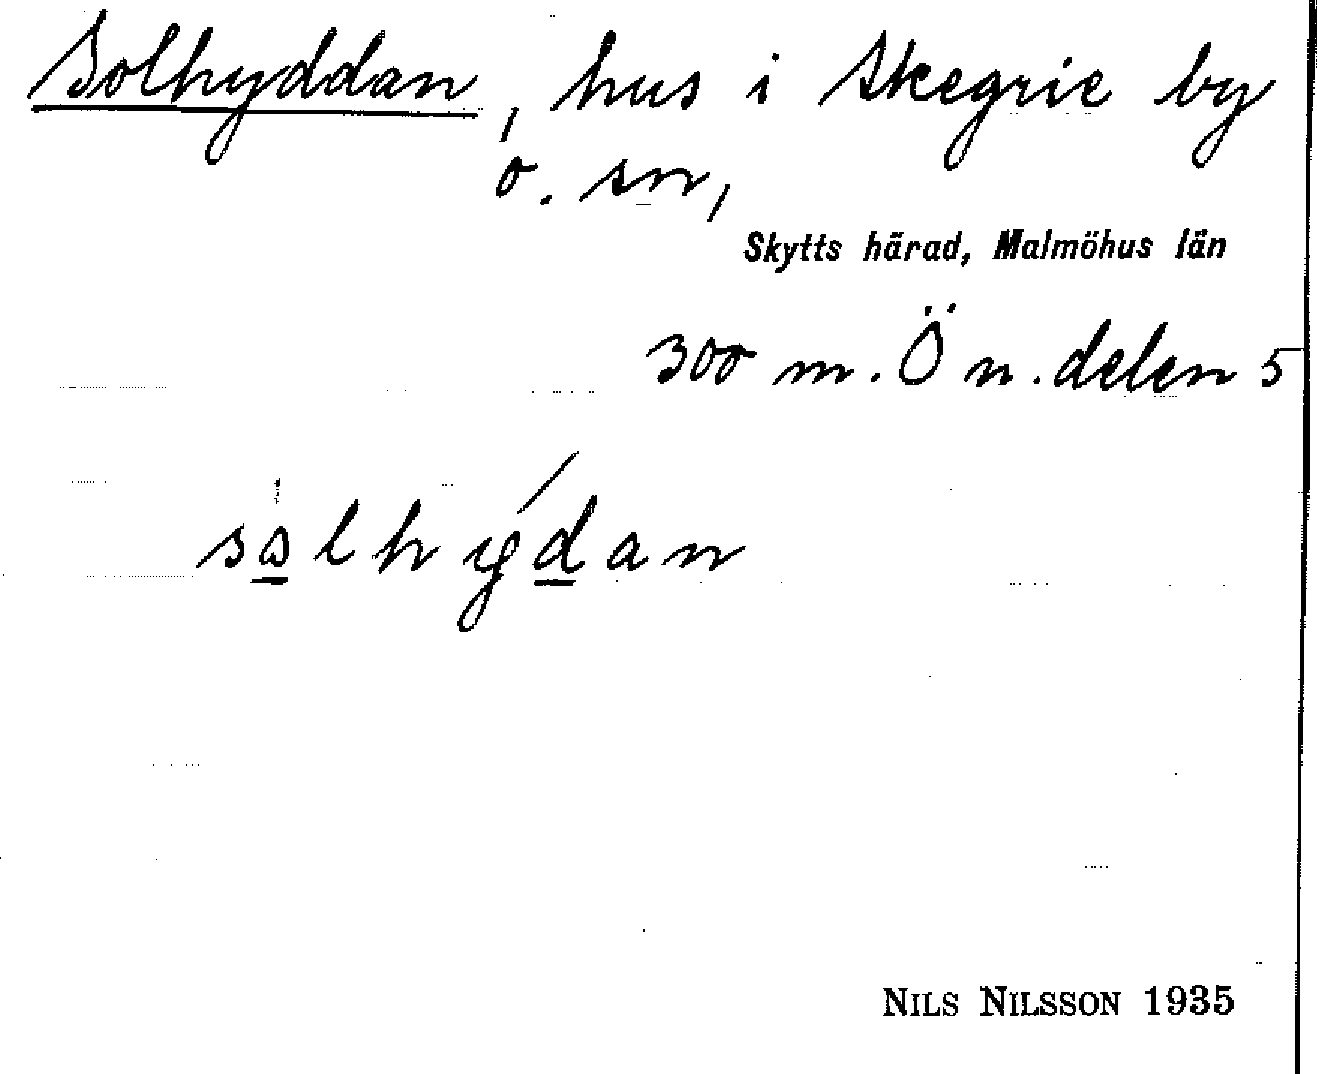 Solhyddan, hus i Skegrie by
o. sn,
Skytts härad, Malmöhus län
300 m. Ö n. delen 5
salhýdan
NILS NILSSON 1935